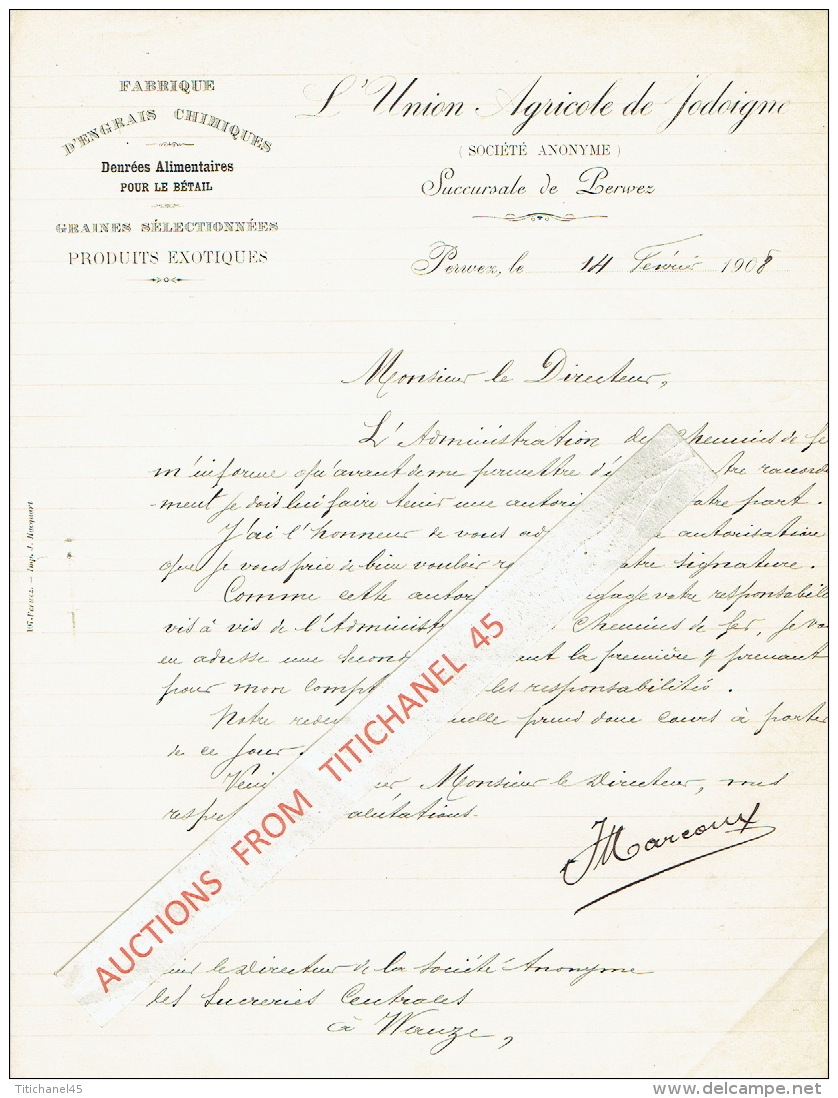 FABRIQUE
D'ENGRAIS CHIMIQUES
Denrées Alimentaires
POUR LE BÉTAIL
GRAINES SÉLECTIONNÉES
PRODUITS EXOTIQUES
L'Union Agricole de Jodoigne
(SOCIÉTÉ ANONYME)
Succursale de Perwez
Perwez, le 14 Février 1908
Monsieur le Directeur,
L'Administration des Chemins de fer
m'informe qu'avant de me permettre d'é tre raccorde
-ment je dois lui faire tenir une autoris votre part.
J'ai l'honneur de vous ad autorisation
que je vous prie de bien vouloir re votre signature.
Comme cette autoris gage votre responsabilité
vis à vis de l'Administ Chemins de fer, je vous
en adresse une second ant la première & prenant
pour mon compt les responsabilités.
Notre rede uelle prend donc cours à partir
de ce jour.
Veui er, Monsieur le Directeur, mes
respe alutations.
JMarcoux
ieur le Directeur de la Société Anonyme
des Sucreries Centrales
à Wanze,
Imp. J. Hacquart
AUCTIONS FROM TITICHANEL 45
Titichanel45
delcampe.net